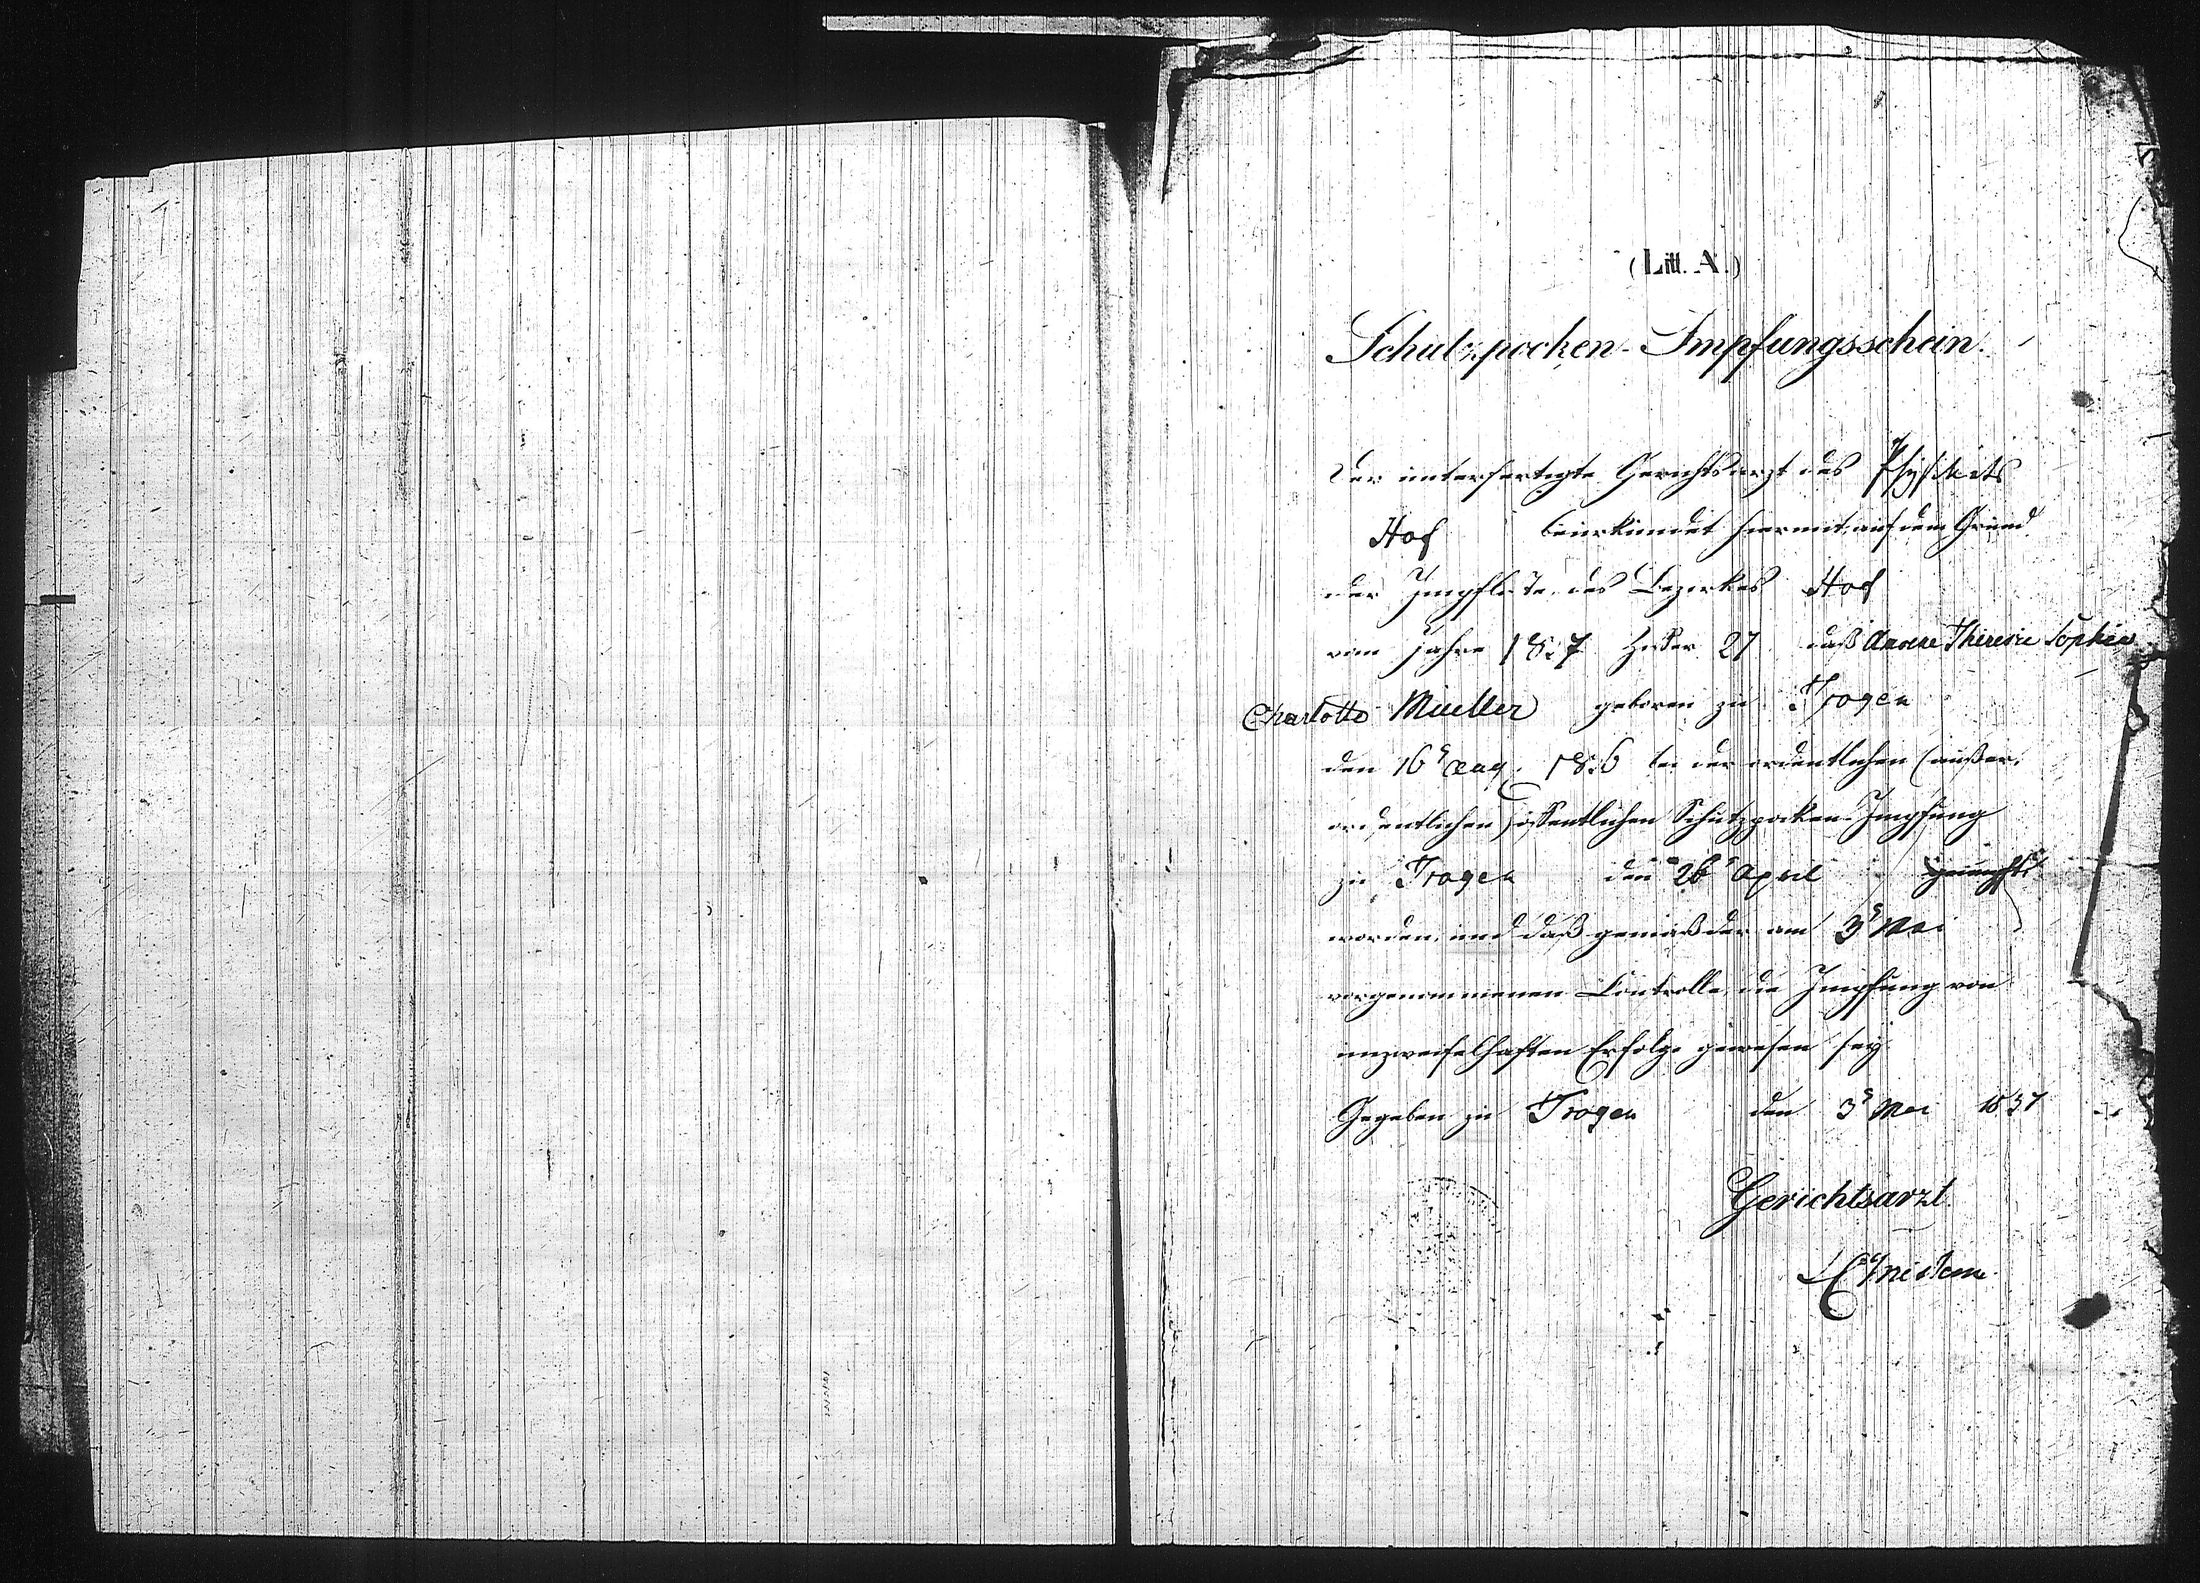 (Litt. A.)
Schutzpocken-Impfungsschein.
Der unterfertigte Gerichtsarzt des Physikats
Hof beurkundet hiermit auf dem Grund
der Impfliste des Bezirkes Hof
vom Jahre 1837 Ziffer 27 daß Theresie Sophie
Charlotte Mueller geboren zu Trogen
den 16 Aug. 1836 bei der ordentlichen (außer-
ordentlichen) öffentlichen Schutzpocken-Impfung
zu Trogen den 26 April geimpft
worden, und daß gemäß der am 3 Mai
vorgenommenen Controlle, die Impfung von
unzweifelhaften Erfolge gewesen sey
Gegeben zu Trogen den 3 Mai 1837
Gerichtsarzt.